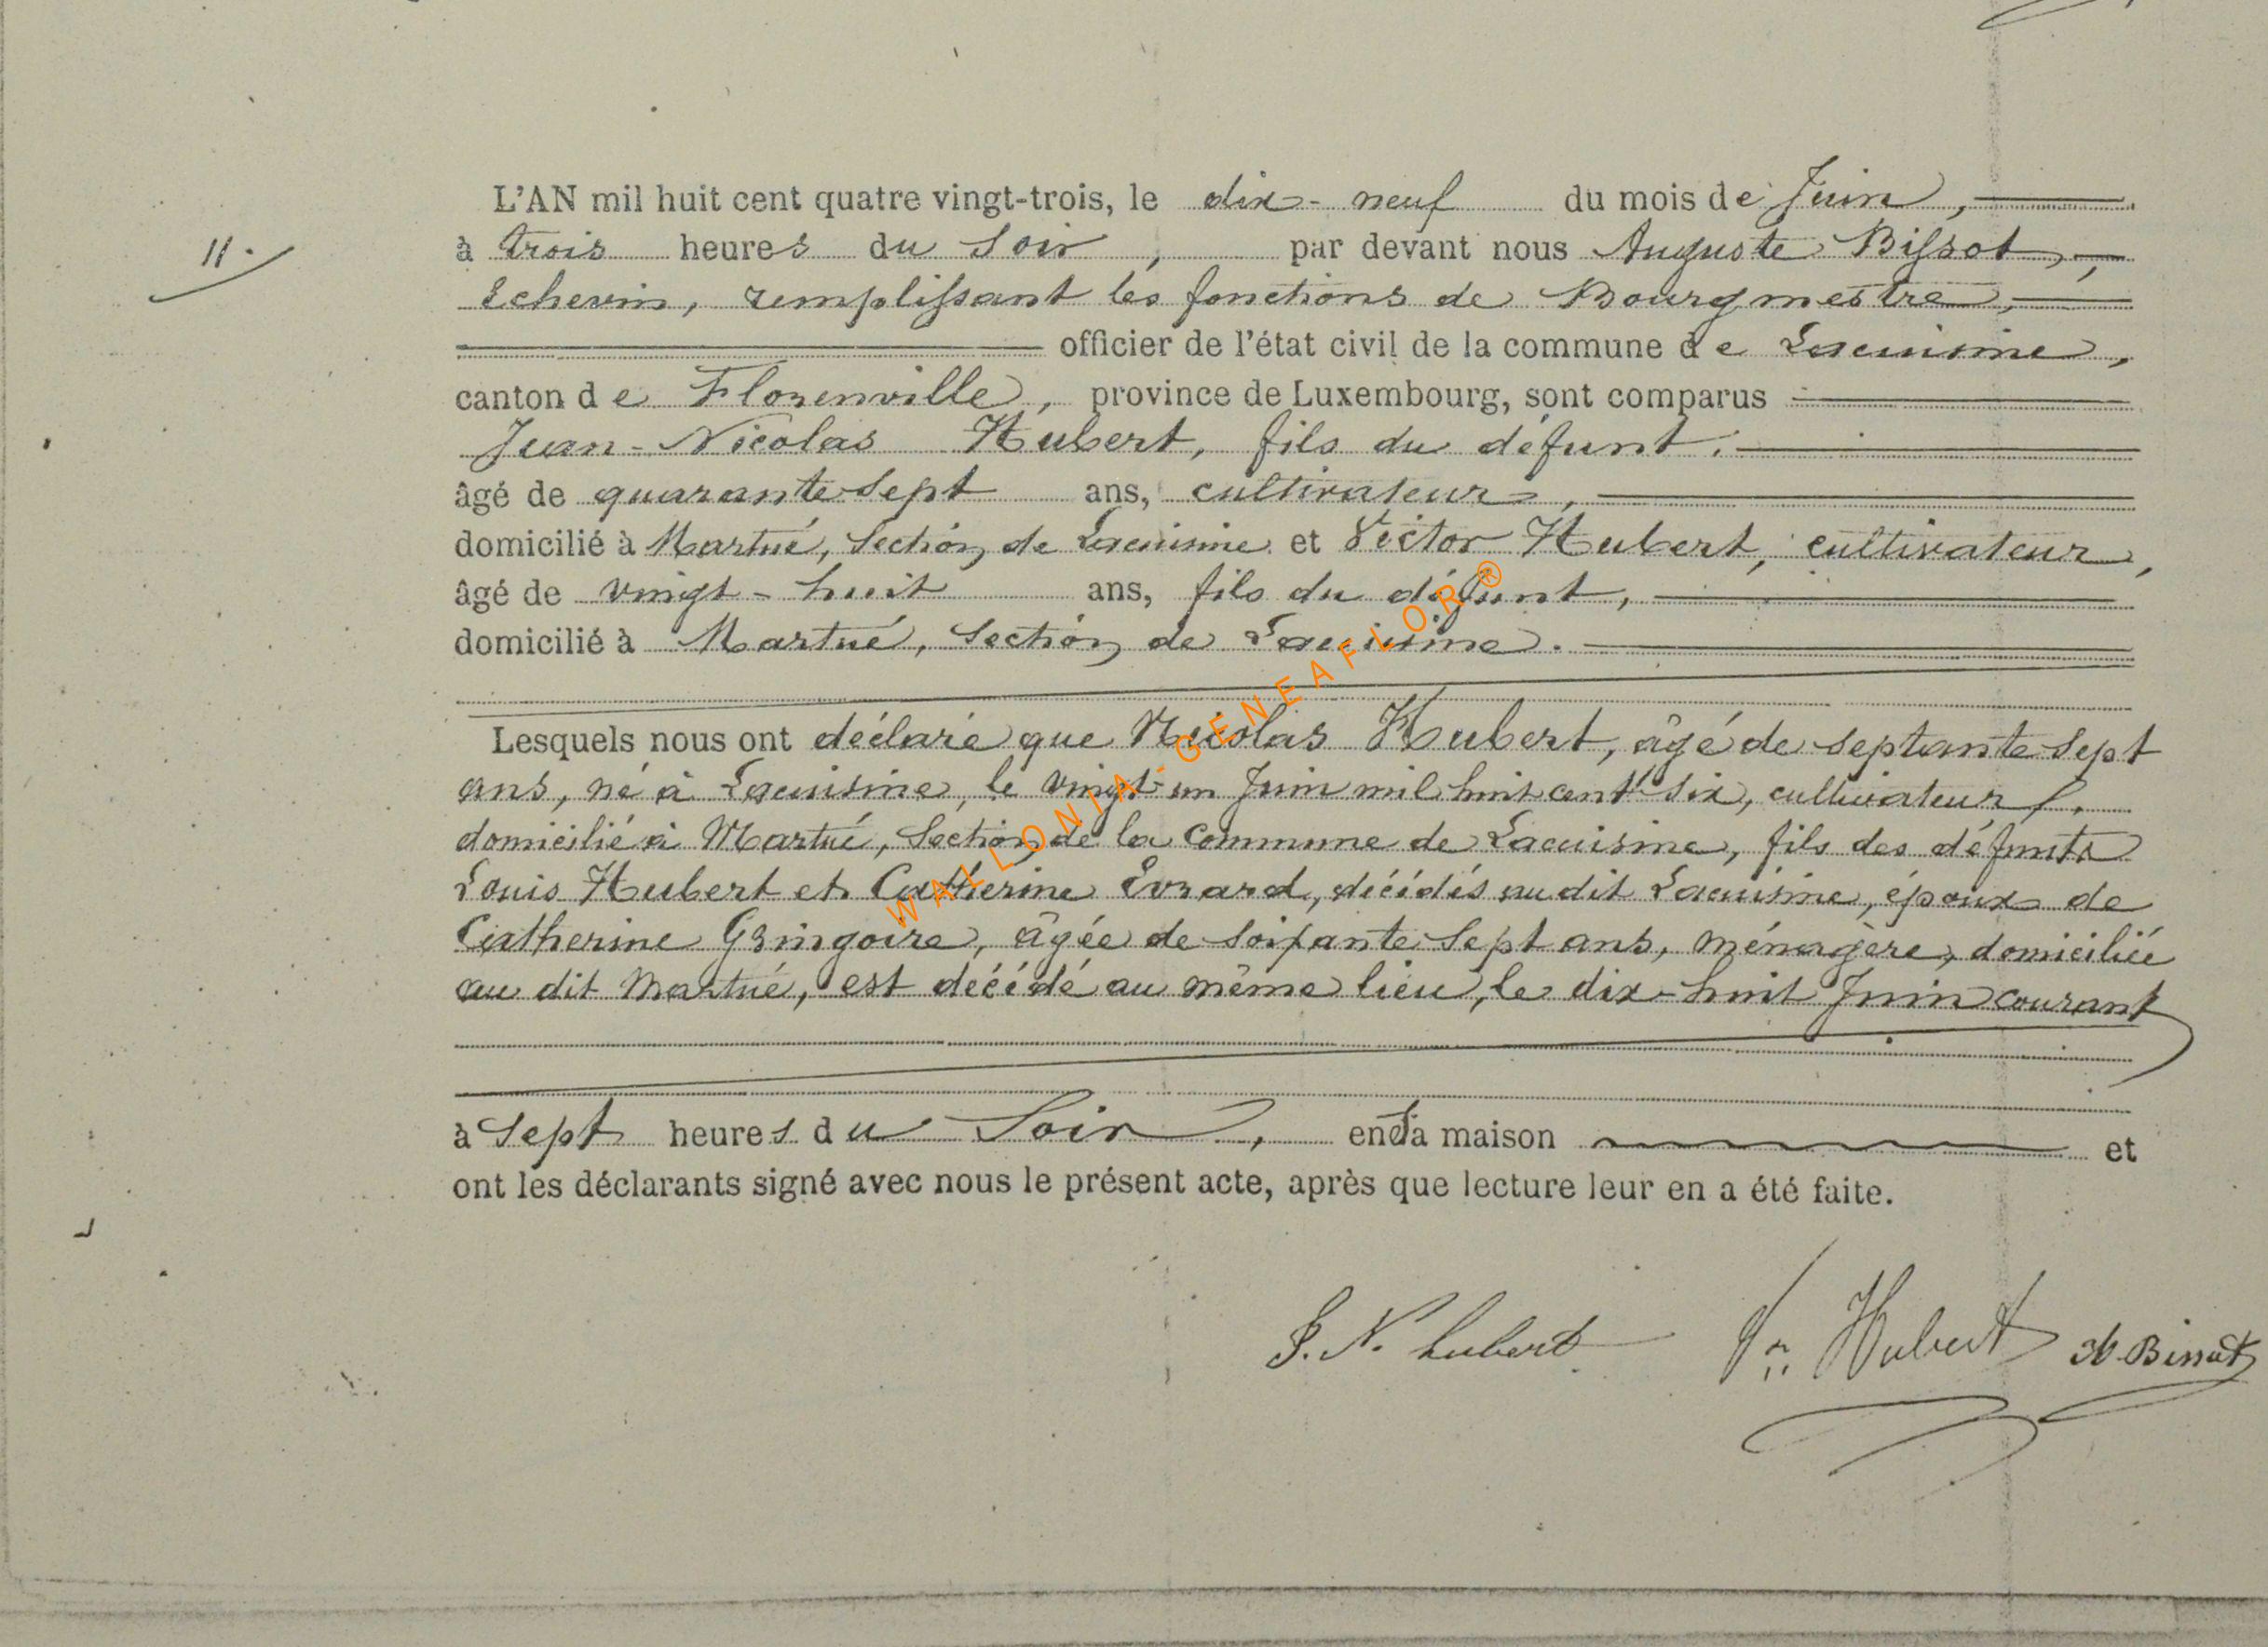 11.
L'AN mil huit cent quatre vingt-trois, le dix-neuf du mois de Juin,
à trois heures du Soir, par devant nous Auguste Bissot,
Echevin, remplissant les fonctions de Bourgmestre,
officier de l'état civil de la commune de Lacuisine,
canton de Florenville, province de Luxembourg, sont comparus
Jean-Nicolas Hubert, fils du défunt,
âgé de quarante sept ans, cultivateur,
domicilié à Martué, Section de Lacuisine et Victor Hubert, cultivateur,
âgé de vingt-huit ans, fils du défunt,
domicilié à Martué, Section de Lacuisine.
Lesquels nous ont déclaré que Nicolas Hubert, âgé de septante sept
ans, né à Lacuisine, le vingt-un Juin mil huit cent six, cultivateur,
domicilié à Martué, Section de la commune de Lacuisine, fils des défunts
Louis Hubert et Catherine Evrard, décédés au dit Lacuisine, époux de
Catherine Gringoire, âgée de soixante sept ans, ménagère, domiciliée
au dit Martué, est décédé au même lieu, le dix-huit Juin courant
à Sept heures du Soir, en sa maison et
ont les déclarants signé avec nous le présent acte, après que lecture leur en a été faite.
J. N. hubert Vr Hubert A. Bissot
WALLONIA-GENEAFLOR®